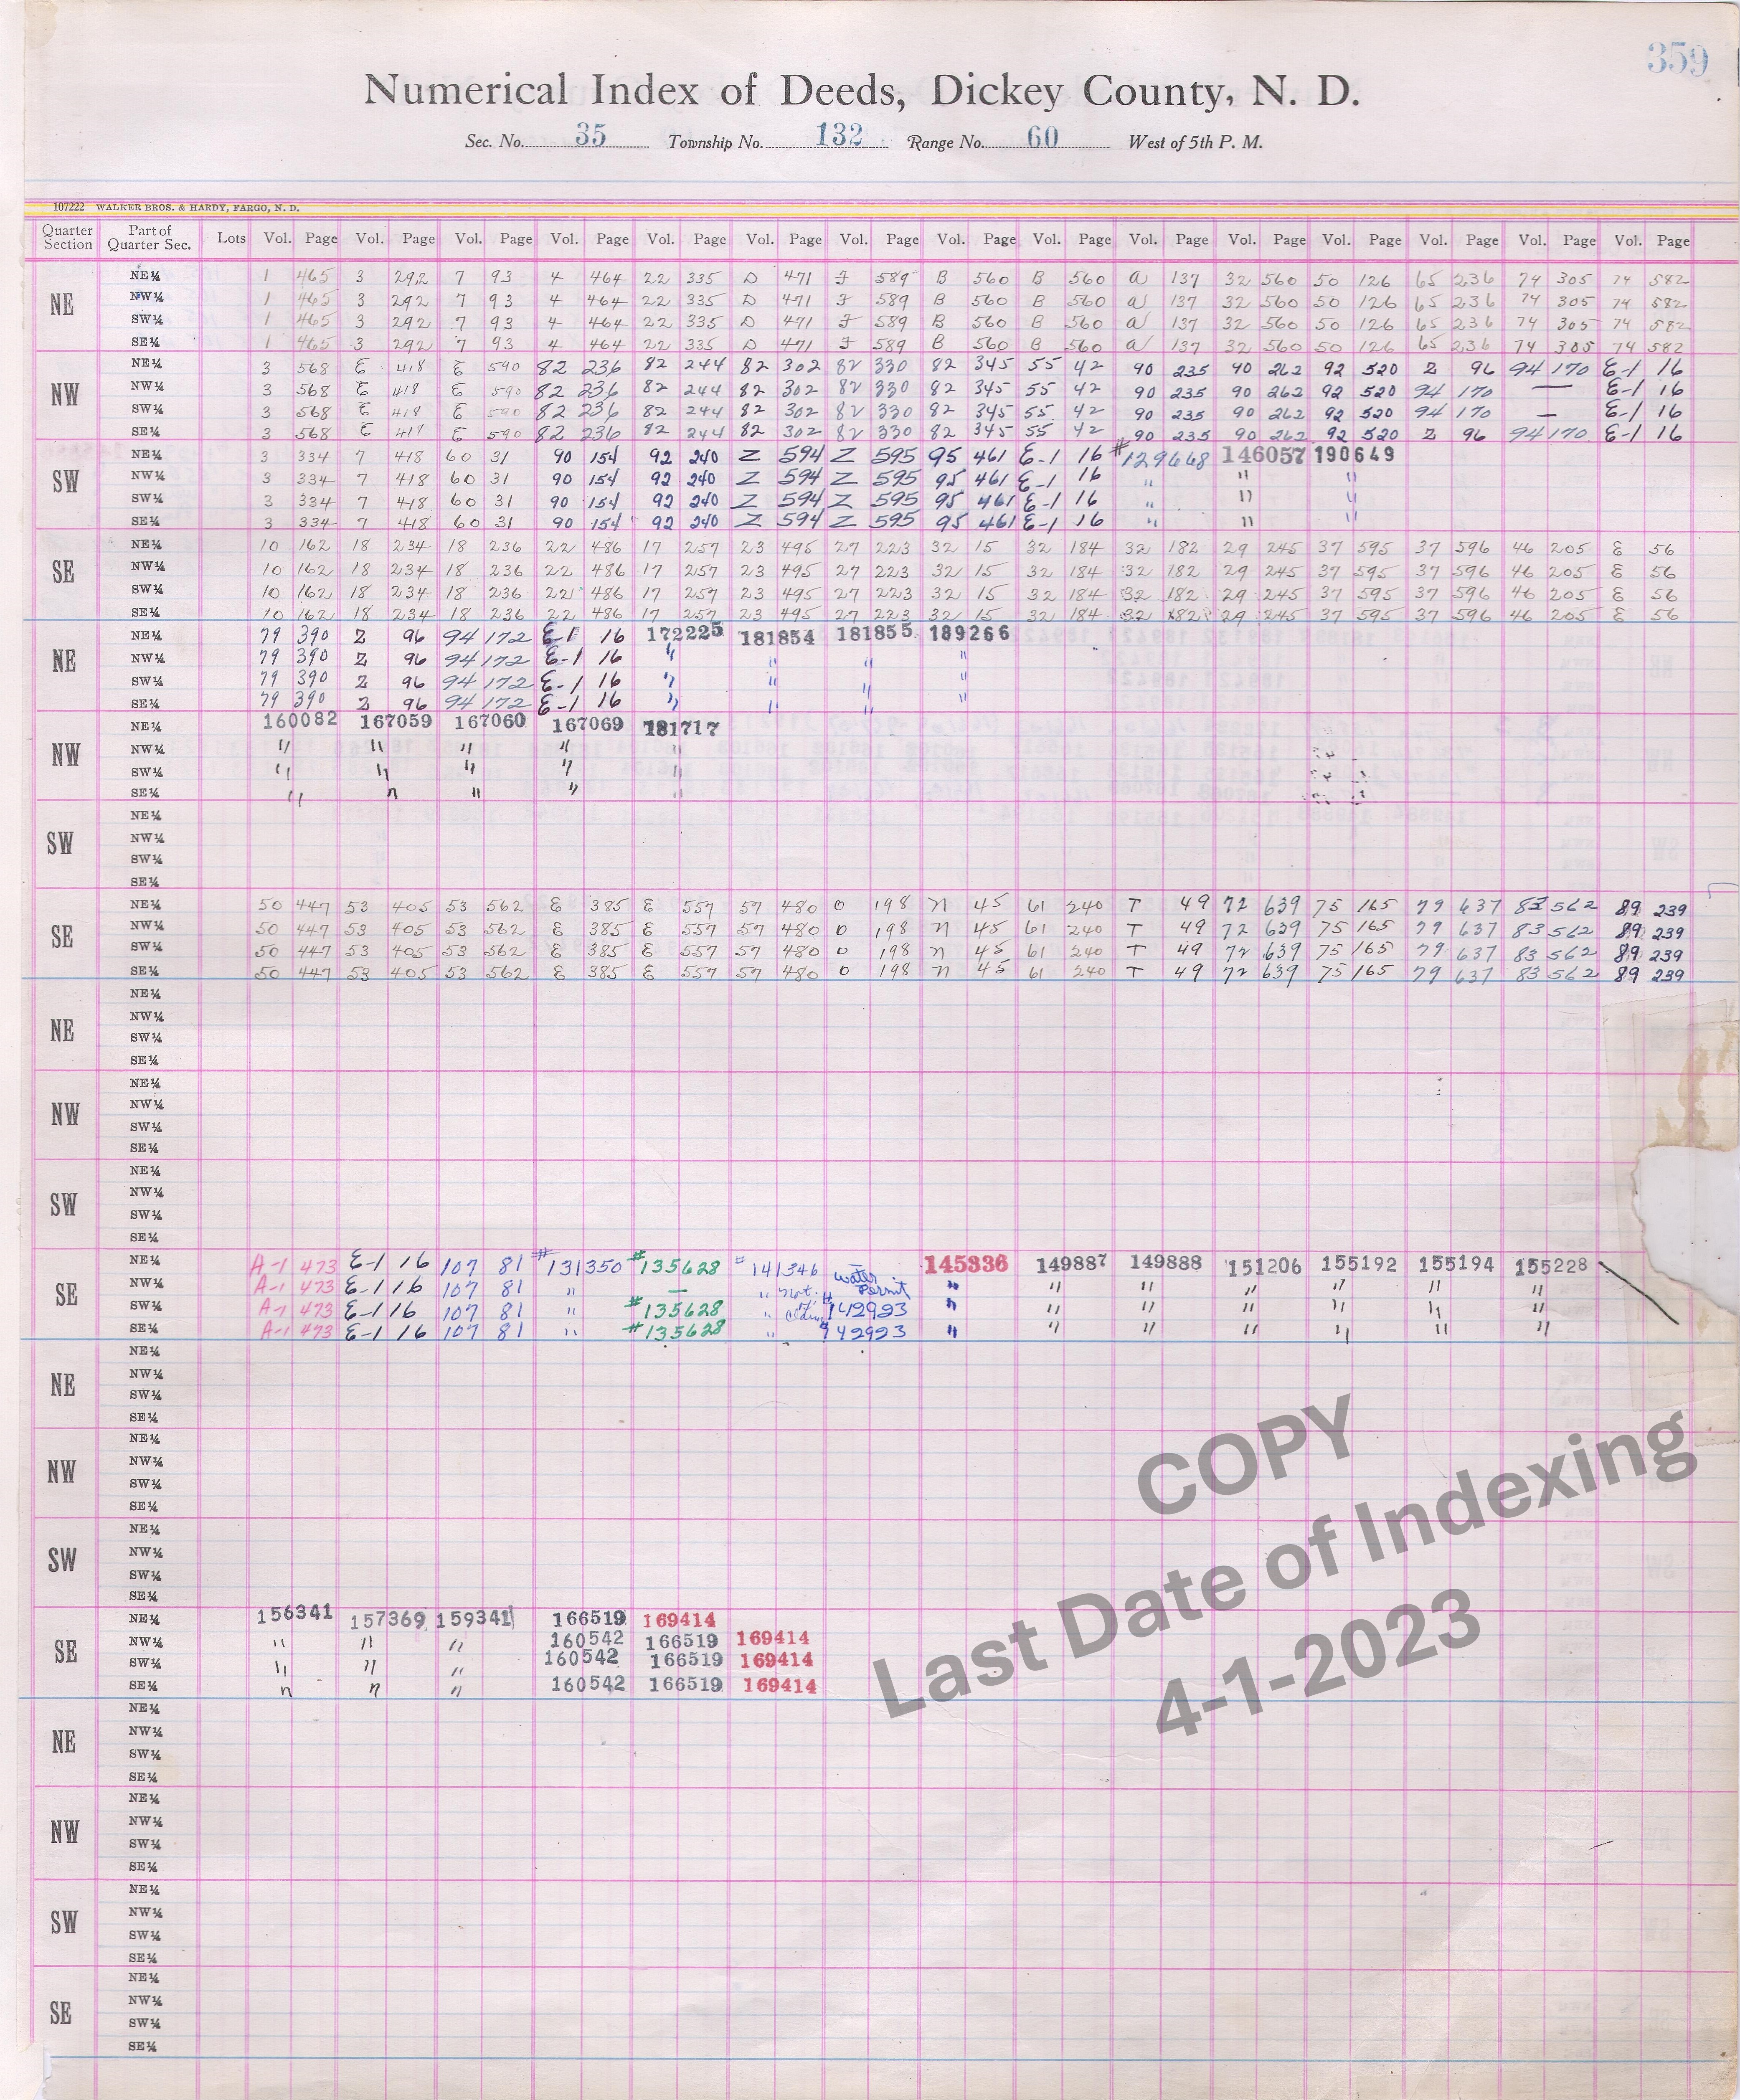 359
Numerical Index of Deeds, Dickey County, N. D.
Sec. No. 35 Township No. 132 Range No. 60 West of 5th P. M.
107222 WALKER BROS. & HARDY, FARGO, N. D.
Quarter Section Part of Quarter Sec. Lots Vol. Page Vol. Page Vol. Page Vol. Page Vol. Page Vol. Page Vol. Page Vol. Page Vol. Page Vol. Page Vol. Page Vol. Page Vol. Page Vol. Page Vol. Page
NE
NE¼ 1 465 3 292 7 93 4 464 22 335 D 471 F 589 B 560 B 560 a 137 32 560 50 126 65 236 74 305 74 582
NW¼ 1 465 3 292 7 93 4 464 22 335 D 471 F 589 B 560 B 560 a 137 32 560 50 126 65 236 74 305 74 582
SW¼ 1 465 3 292 7 93 4 464 22 335 D 471 F 589 B 560 B 560 a 137 32 560 50 126 65 236 74 305 74 582
SE¼ 1 465 3 292 7 93 4 464 22 335 D 471 F 589 B 560 B 560 a 137 32 560 50 126 65 236 74 305 74 582
NW
NE¼ 3 568 E 418 E 590 82 236 82 244 82 302 82 330 82 345 55 42 90 235 90 262 92 520 Z 96 94 170 E-1 16
NW¼ 3 568 E 418 E 590 82 236 82 244 82 302 82 330 82 345 55 42 90 235 90 262 92 520 94 170 — E-1 16
SW¼ 3 568 E 418 E 590 82 236 82 244 82 302 82 330 82 345 55 42 90 235 90 262 92 520 94 170 — E-1 16
SE¼ 3 568 E 418 E 590 82 236 82 244 82 302 82 330 82 345 55 42 90 235 90 262 92 520 Z 96 94 170 E-1 16
SW
NE¼ 3 334 7 418 60 31 90 154 92 240 Z 594 Z 595 95 461 E-1 16 #129668 146057 190649
NW¼ 3 334 7 418 60 31 90 154 92 240 Z 594 Z 595 95 461 E-1 16 " " "
SW¼ 3 334 7 418 60 31 90 154 92 240 Z 594 Z 595 95 461 E-1 16 " " "
SE¼ 3 334 7 418 60 31 90 154 92 240 Z 594 Z 595 95 461 E-1 16 " " "
SE
NE¼ 10 162 18 234 18 236 22 486 17 257 23 495 27 223 32 15 32 184 32 182 29 245 37 595 37 596 46 205 E 56
NW¼ 10 162 18 234 18 236 22 486 17 257 23 495 27 223 32 15 32 184 32 182 29 245 37 595 37 596 46 205 E 56
SW¼ 10 162 18 234 18 236 22 486 17 257 23 495 27 223 32 15 32 184 32 182 29 245 37 595 37 596 46 205 E 56
SE¼ 10 162 18 234 18 236 22 486 17 257 23 495 27 223 32 15 32 184 32 182 29 245 37 595 37 596 46 205 E 56
NE
NE¼ 79 390 Z 96 94 172 E-1 16 172225 181854 181855 189266
NW¼ 79 390 Z 96 94 172 E-1 16 " " " "
SW¼ 79 390 Z 96 94 172 E-1 16 " " " "
SE¼ 79 390 Z 96 94 172 E-1 16 " " " "
NW
NE¼ 160082 167059 167060 167069 181717
NW¼ " " " " "
SW¼ " " " " "
SE¼ " " " " "
SW
NE¼
NW¼
SW¼
SE¼
SE
NE¼ 50 447 53 405 53 562 E 385 E 557 57 480 O 198 n 45 61 240 T 49 72 639 75 165 79 637 83 562 89 239
NW¼ 50 447 53 405 53 562 E 385 E 557 57 480 O 198 n 45 61 240 T 49 72 639 75 165 79 637 83 562 89 239
SW¼ 50 447 53 405 53 562 E 385 E 557 57 480 O 198 n 45 61 240 T 49 72 639 75 165 79 637 83 562 89 239
SE¼ 50 447 53 405 53 562 E 385 E 557 57 480 O 198 n 45 61 240 T 49 72 639 75 165 79 637 83 562 89 239
NE
NE¼
NW¼
SW¼
SE¼
NW
NE¼
NW¼
SW¼
SE¼
SW
NE¼
NW¼
SW¼
SE¼
SE
NE¼ A-1 473 E-1 16 107 81 #131350 #135628 #141346 145336 149887 149888 151206 155192 155194 155228
NW¼ A-1 473 E-1 16 107 81 " — " not. water permit " " " " " " "
SW¼ A-1 473 E-1 16 107 81 " #135628 " of claim #142923 " " " " " " "
SE¼ A-1 473 E-1 16 107 81 " #135628 " 142923 " " " " " " "
NE
NE¼
NW¼
SW¼
SE¼
NW
NE¼
NW¼
SW¼
SE¼
SW
NE¼
NW¼
SW¼
SE¼
SE
NE¼ 156341 157369 159341 166519 169414
NW¼ " " " 160542 166519 169414
SW¼ " " " 160542 166519 169414
SE¼ " " " 160542 166519 169414
NE
NE¼
NW¼
SW¼
SE¼
NW
NE¼
NW¼
SW¼
SE¼
SW
NE¼
NW¼
SW¼
SE¼
SE
NE¼
NW¼
SW¼
SE¼
COPY
Last Date of Indexing
4-1-2023